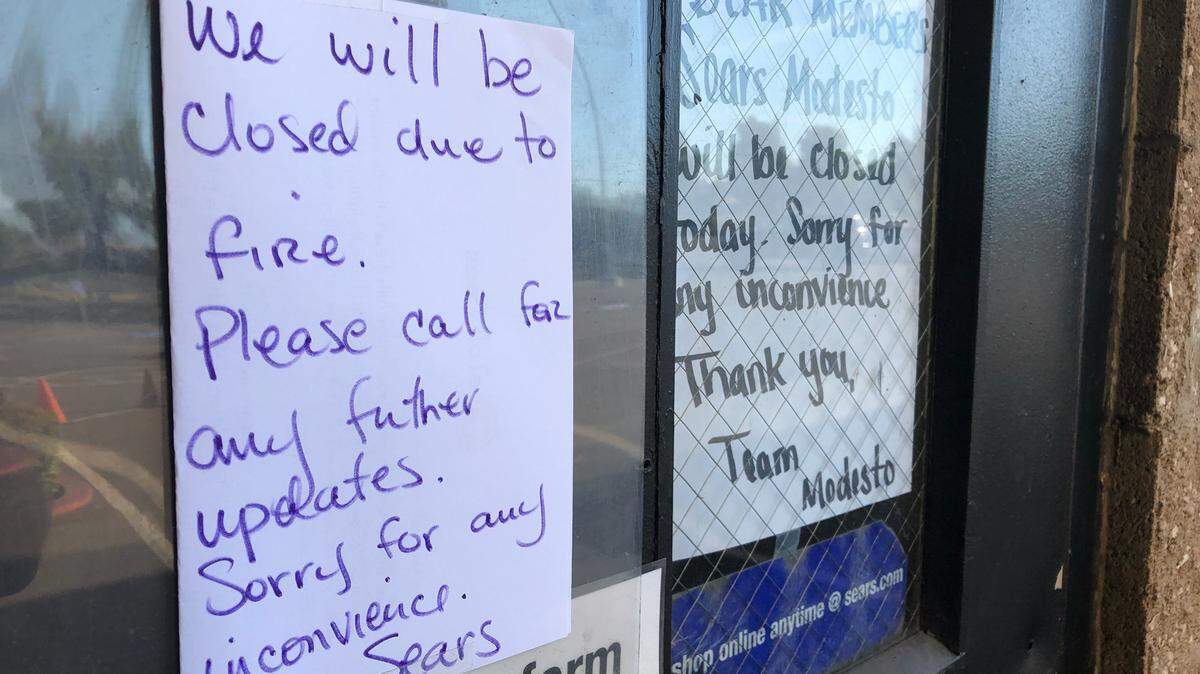 We will be
Closed due to
fire.
Please call for
any futher
updates.
Sorry for any
inconvience.
Sears
DEAR MEMBERS
Sears Modesto
will be closed
today. Sorry for
any inconvience
Thank you,
Team
Modesto
shop online anytime @ sears.com
form